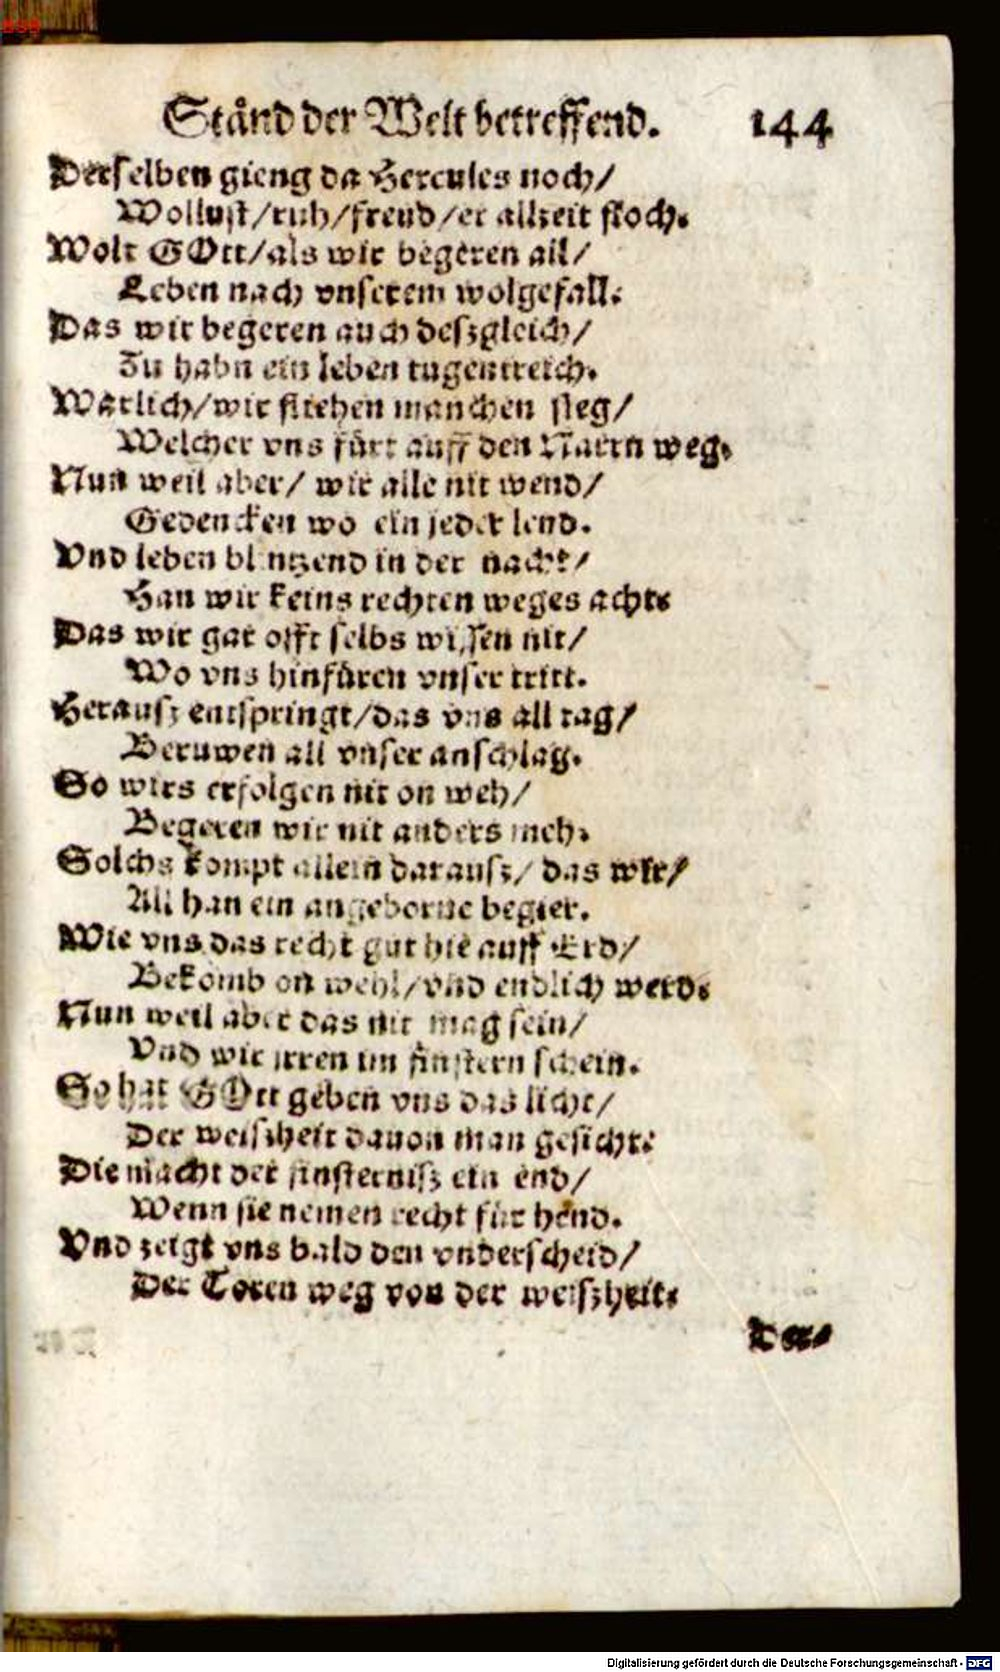 BSB
Ständ der Welt betreffend. 144
Derselben gieng da Hercules noch/
Wollust/ruh/freud/er allzeit floch.
Wolt GOtt/als wir begeren all/
Leben nach vnserem wolgefall.
Das wir begeren auch deszgleich/
Zu habn ein leben tugentreich.
Warlich/wir fliehen manchen steg/
Welcher vns fürt auff den Narrn weg.
Nun weil aber/ wir alle nit wend/
Gedencken wo ein jeder lend.
Vnd leben blintzend in der nacht/
Han wir keins rechten weges acht.
Das wir gar offt selbs wissen nit/
Wo vns hinfüren vnser tritt.
Herausz entspringt/das vns all tag/
Beruwen all vnser anschlag.
So wirs erfolgen nit on weh/
Begeren wir nit anders meh.
Solchs kompt allein darausz/ das wir/
All han ein angeborne begier.
Wie vns das recht gut hie auff Erd/
Bekomb on wehl/vnd endlich werd.
Nun weil aber das nit mag sein/
Vnd wir irren im finstern schein.
So hat GOtt geben vns das licht/
Der weiszheit dauon man gesicht.
Die macht der finsternisz ein end/
Wenn sie nemen recht für hend.
Vnd zeigt vns bald den vnderscheid/
Der Toren weg von der weiszheit.
Digitalisierung gefördert durch die Deutsche Forschungsgemeinschaft - DFG